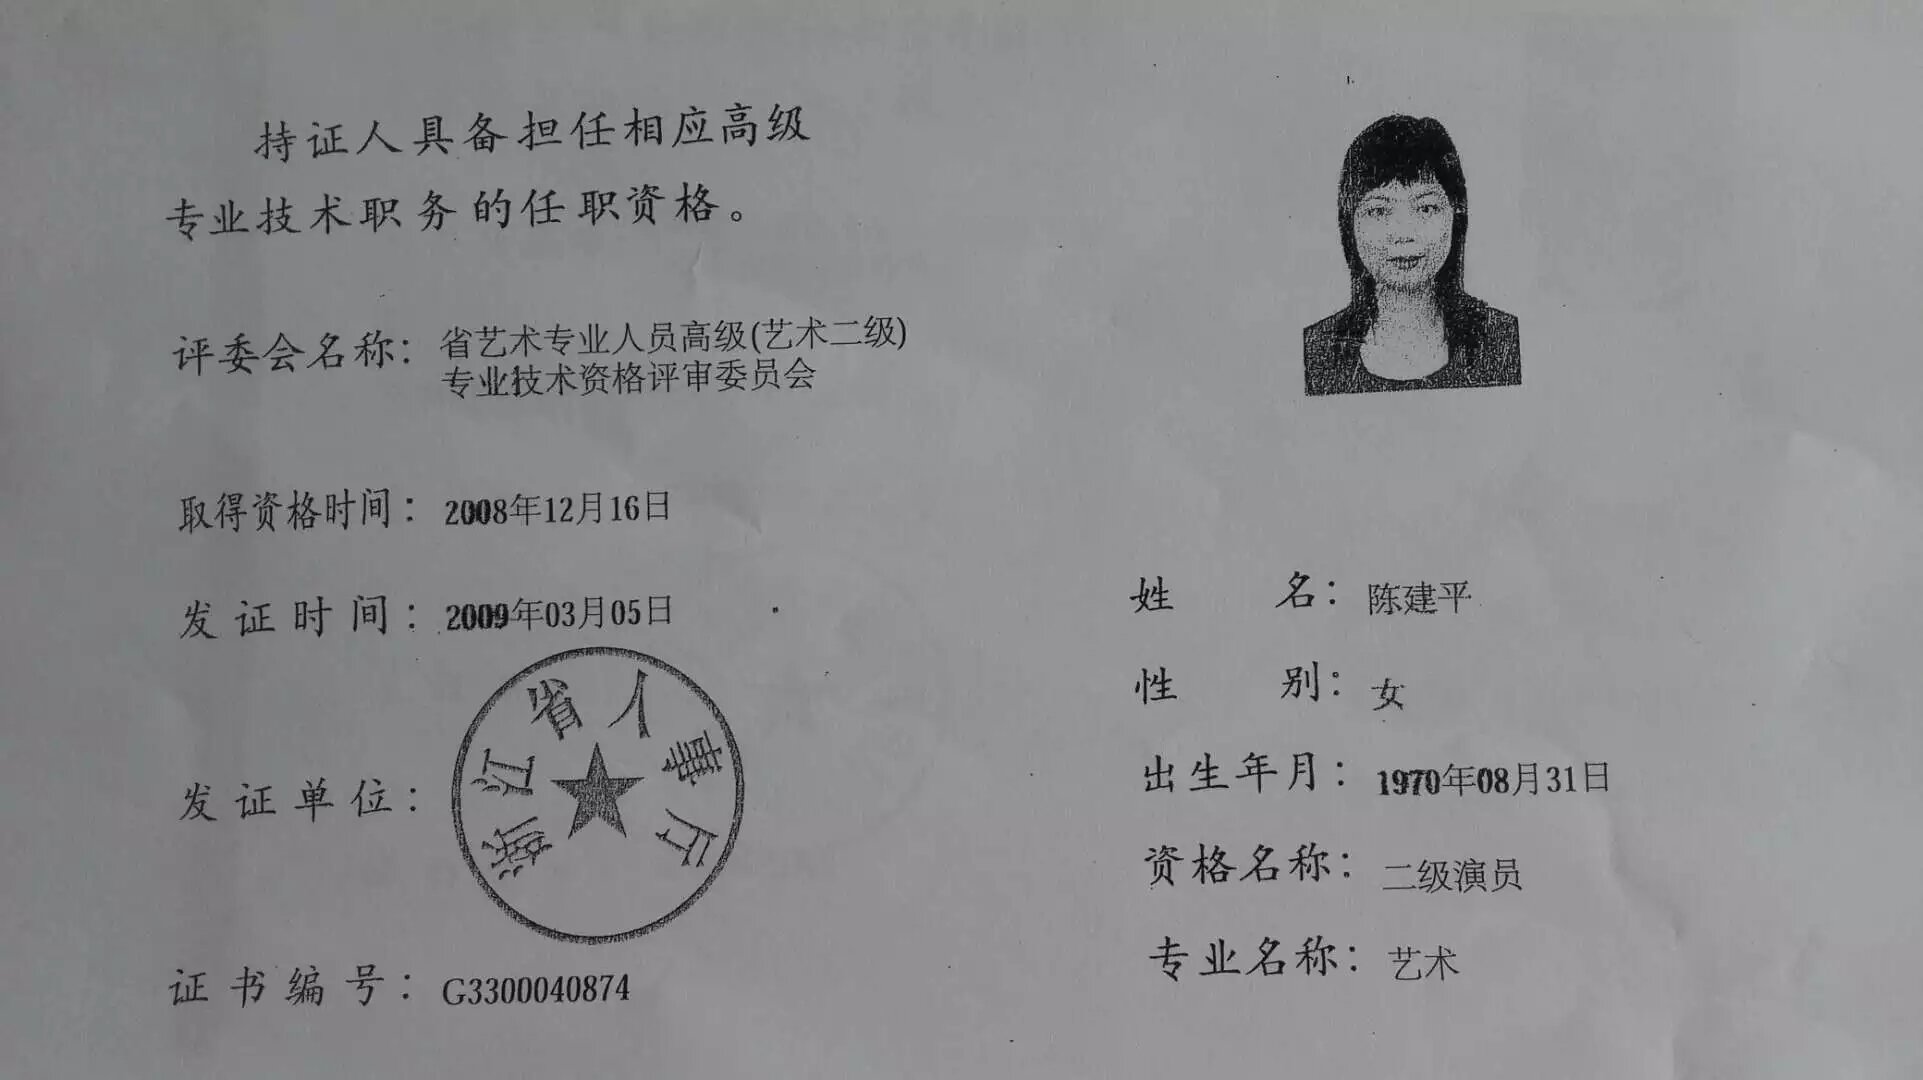 持证人具备担任相应高级
专业技术职务的任职资格。
评委会名称：省艺术专业人员高级(艺术二级)
专业技术资格评审委员会
取得资格时间：2008年12月16日
发证时间：2009年03月05日
发证单位：
浙江省人事厅
证书编号：G3300040874
姓名：陈建平
性别：女
出生年月：1970年08月31日
资格名称：二级演员
专业名称：艺术